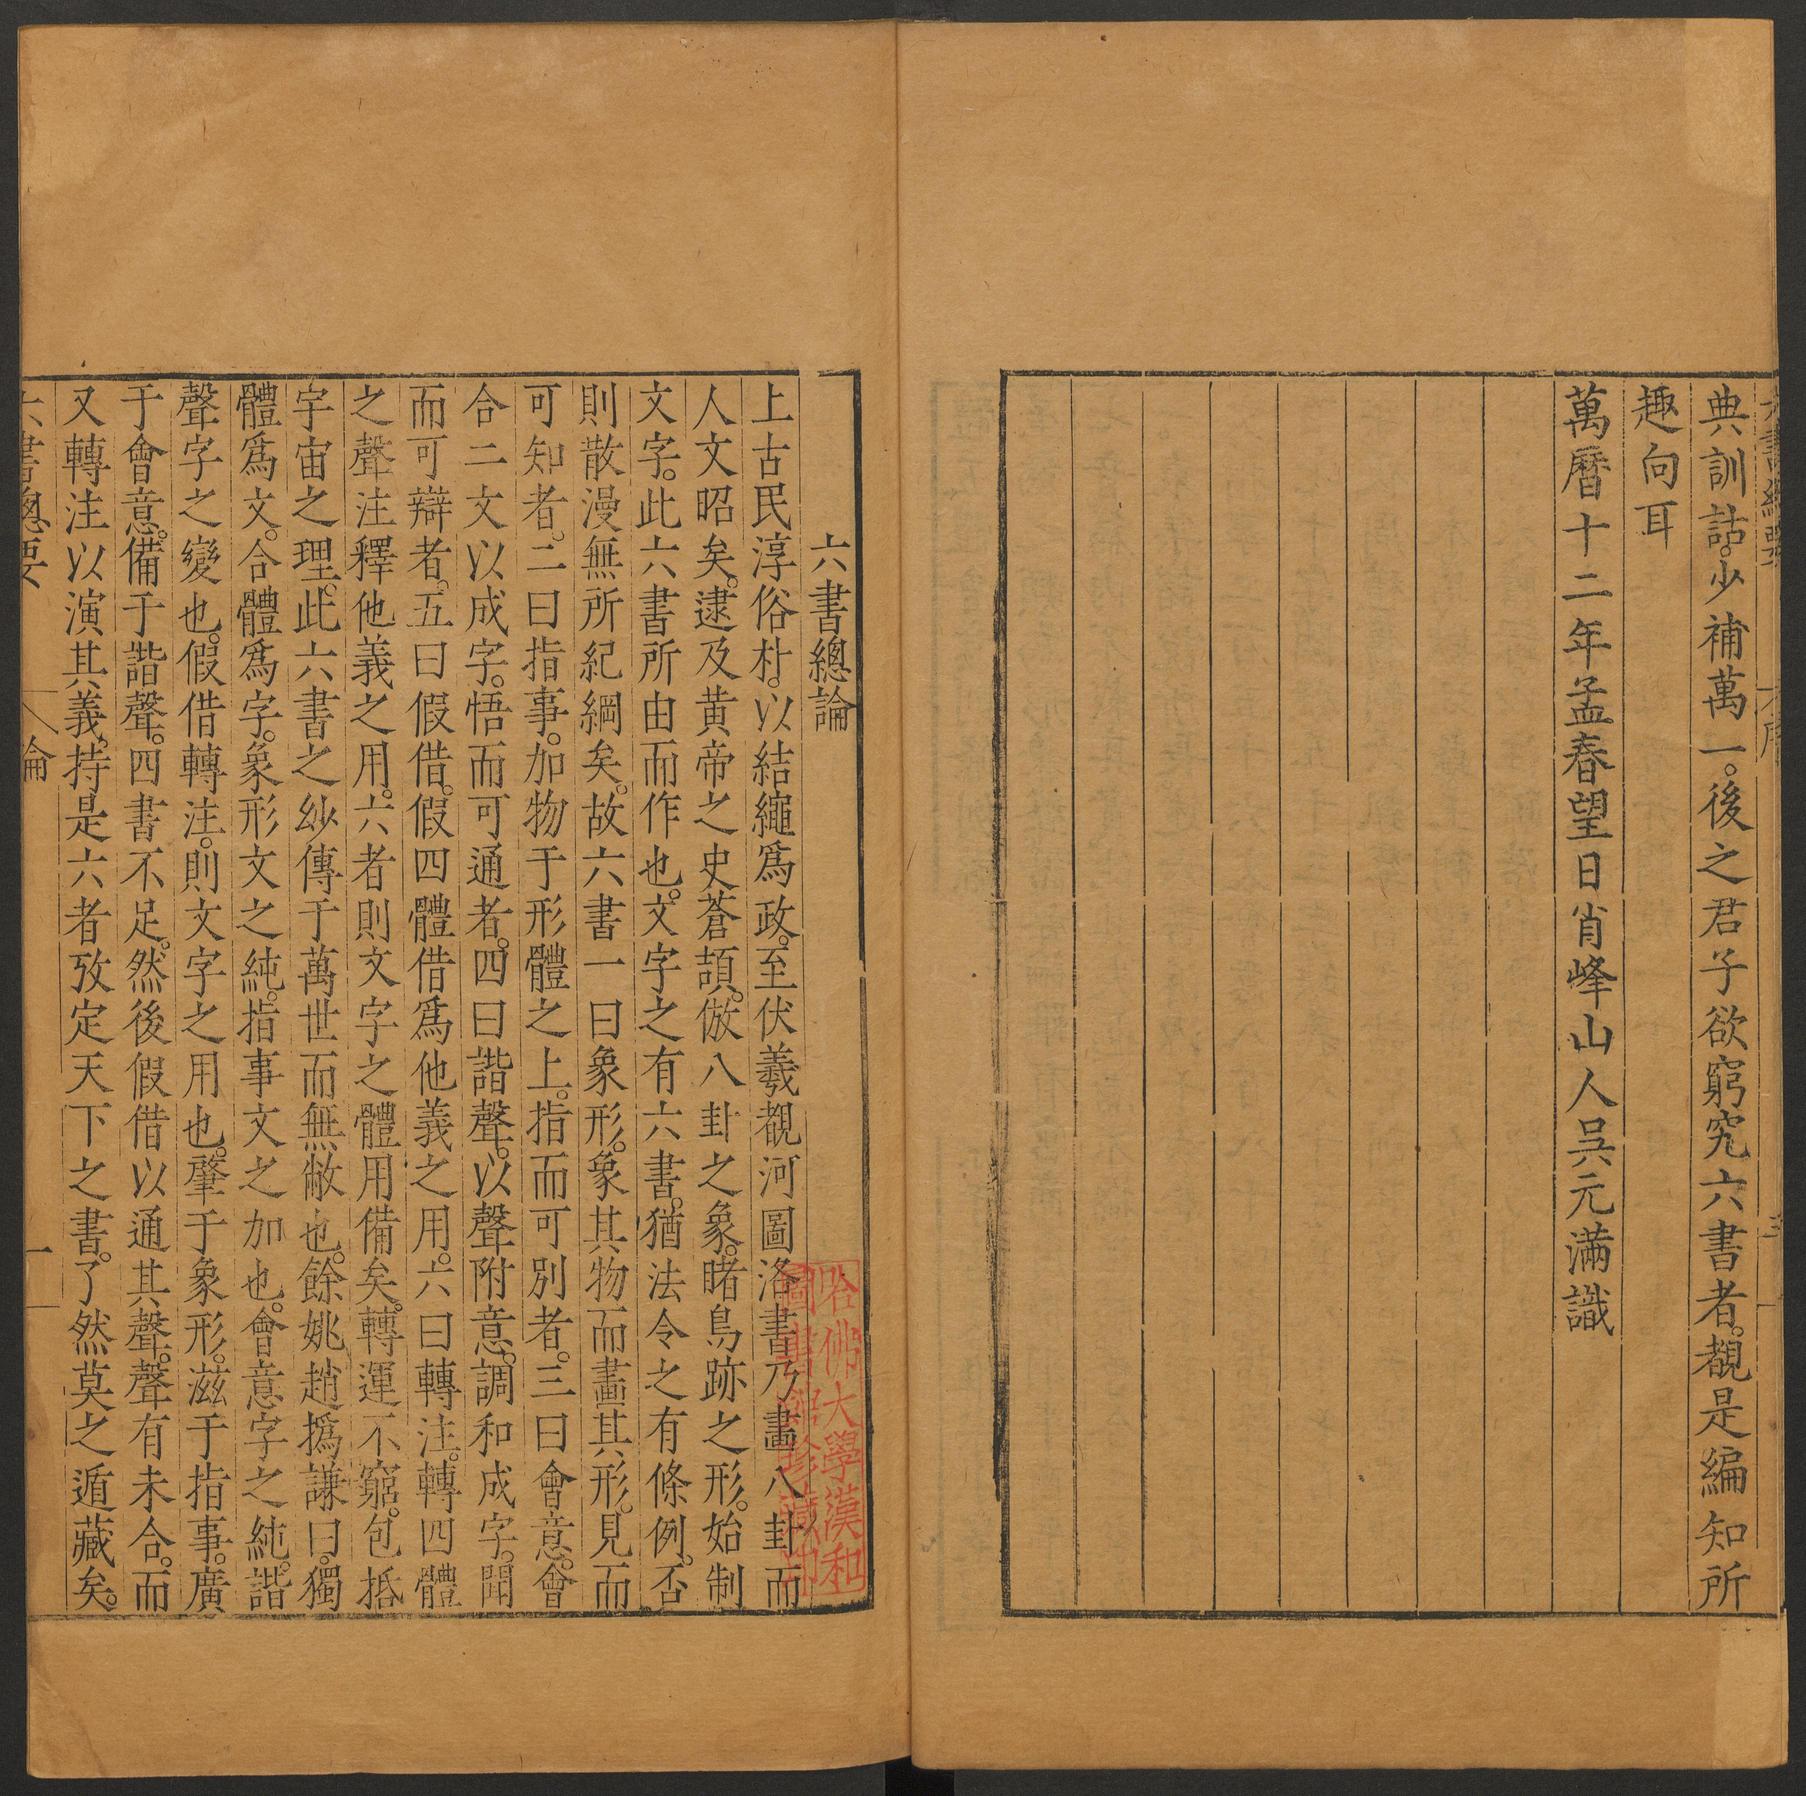 典訓詁。少補萬一。後之君子欲窮究六書者。覩是編知所
趣向耳
萬曆十二年孟春望日肖峰山人吳元滿識
六書總論
上古民淳俗朴。以結繩爲政。至伏羲覩河圖洛書乃畫八卦而
人文昭矣。逮及黃帝之史蒼頡。倣八卦之象。睹鳥跡之形。始制
文字。此六書所由而作也。文字之有六書。猶法令之有條例。否
則散漫無所紀綱矣。故六書一曰象形。象其物而畫其形。見而
可知者。二曰指事。加物于形體之上。指而可別者。三曰會意。會
合二文以成字。悟而可通者。四曰諧聲。以聲附意。調和成字。聞
而可辯者。五曰假借。假四體借爲他義之用。六曰轉注。轉四體
之聲注釋他義之用。六者則文字之體用備矣。轉運不窮。包括
宇宙之理。此六書之紗傳于萬世而無敝也。餘姚趙撝謙曰。獨
體爲文。合體爲字。象形文之純。指事文之加也。會意字之純。諧
聲字之變也。假借轉注。則文字之用也。肇于象形。滋于指事。廣
于會意。備于諧聲。四書不足。然後假借以通其聲。聲有未合。而
又轉注以演其義。持是六者攷定天下之書。了然莫之遁藏矣。
六書總要 論 一
哈佛大學漢和
圖書館珍藏印